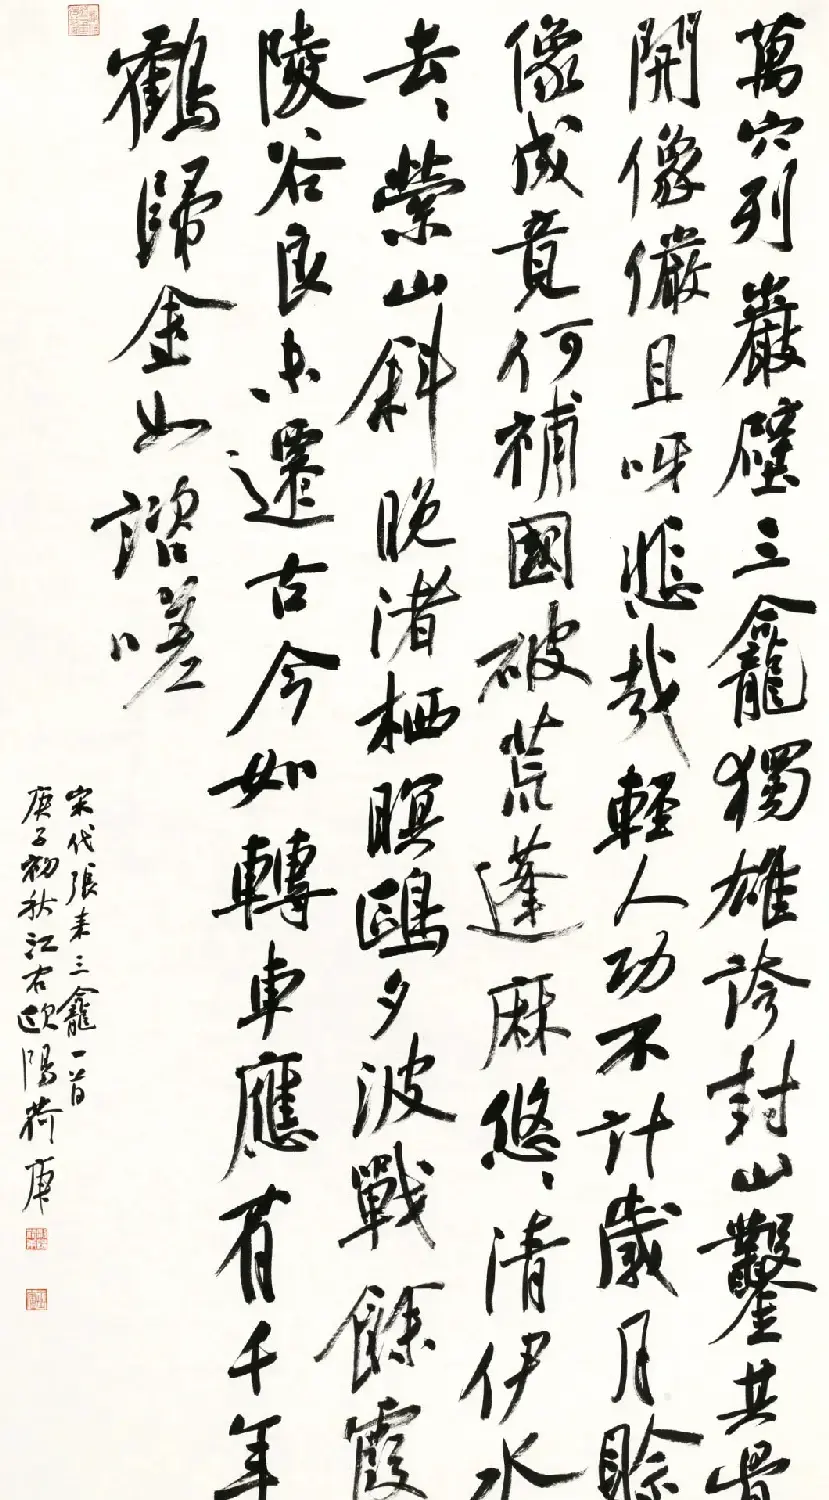 萬穴列巖壁三龕獨雄誇封山鑿共骨
開像儼且呀悲哉輕人功不計歲月賒
像成竟何補國破荒蓬麻悠〻清伊水
去〻縈山斜晚渚栖暝鷗夕波戰餘霞
陵谷良未遷古今如轉車應有千年
鶴歸金諮嗟
宋代張耒三龕一首
庚子初秋江右歐陽荷庚